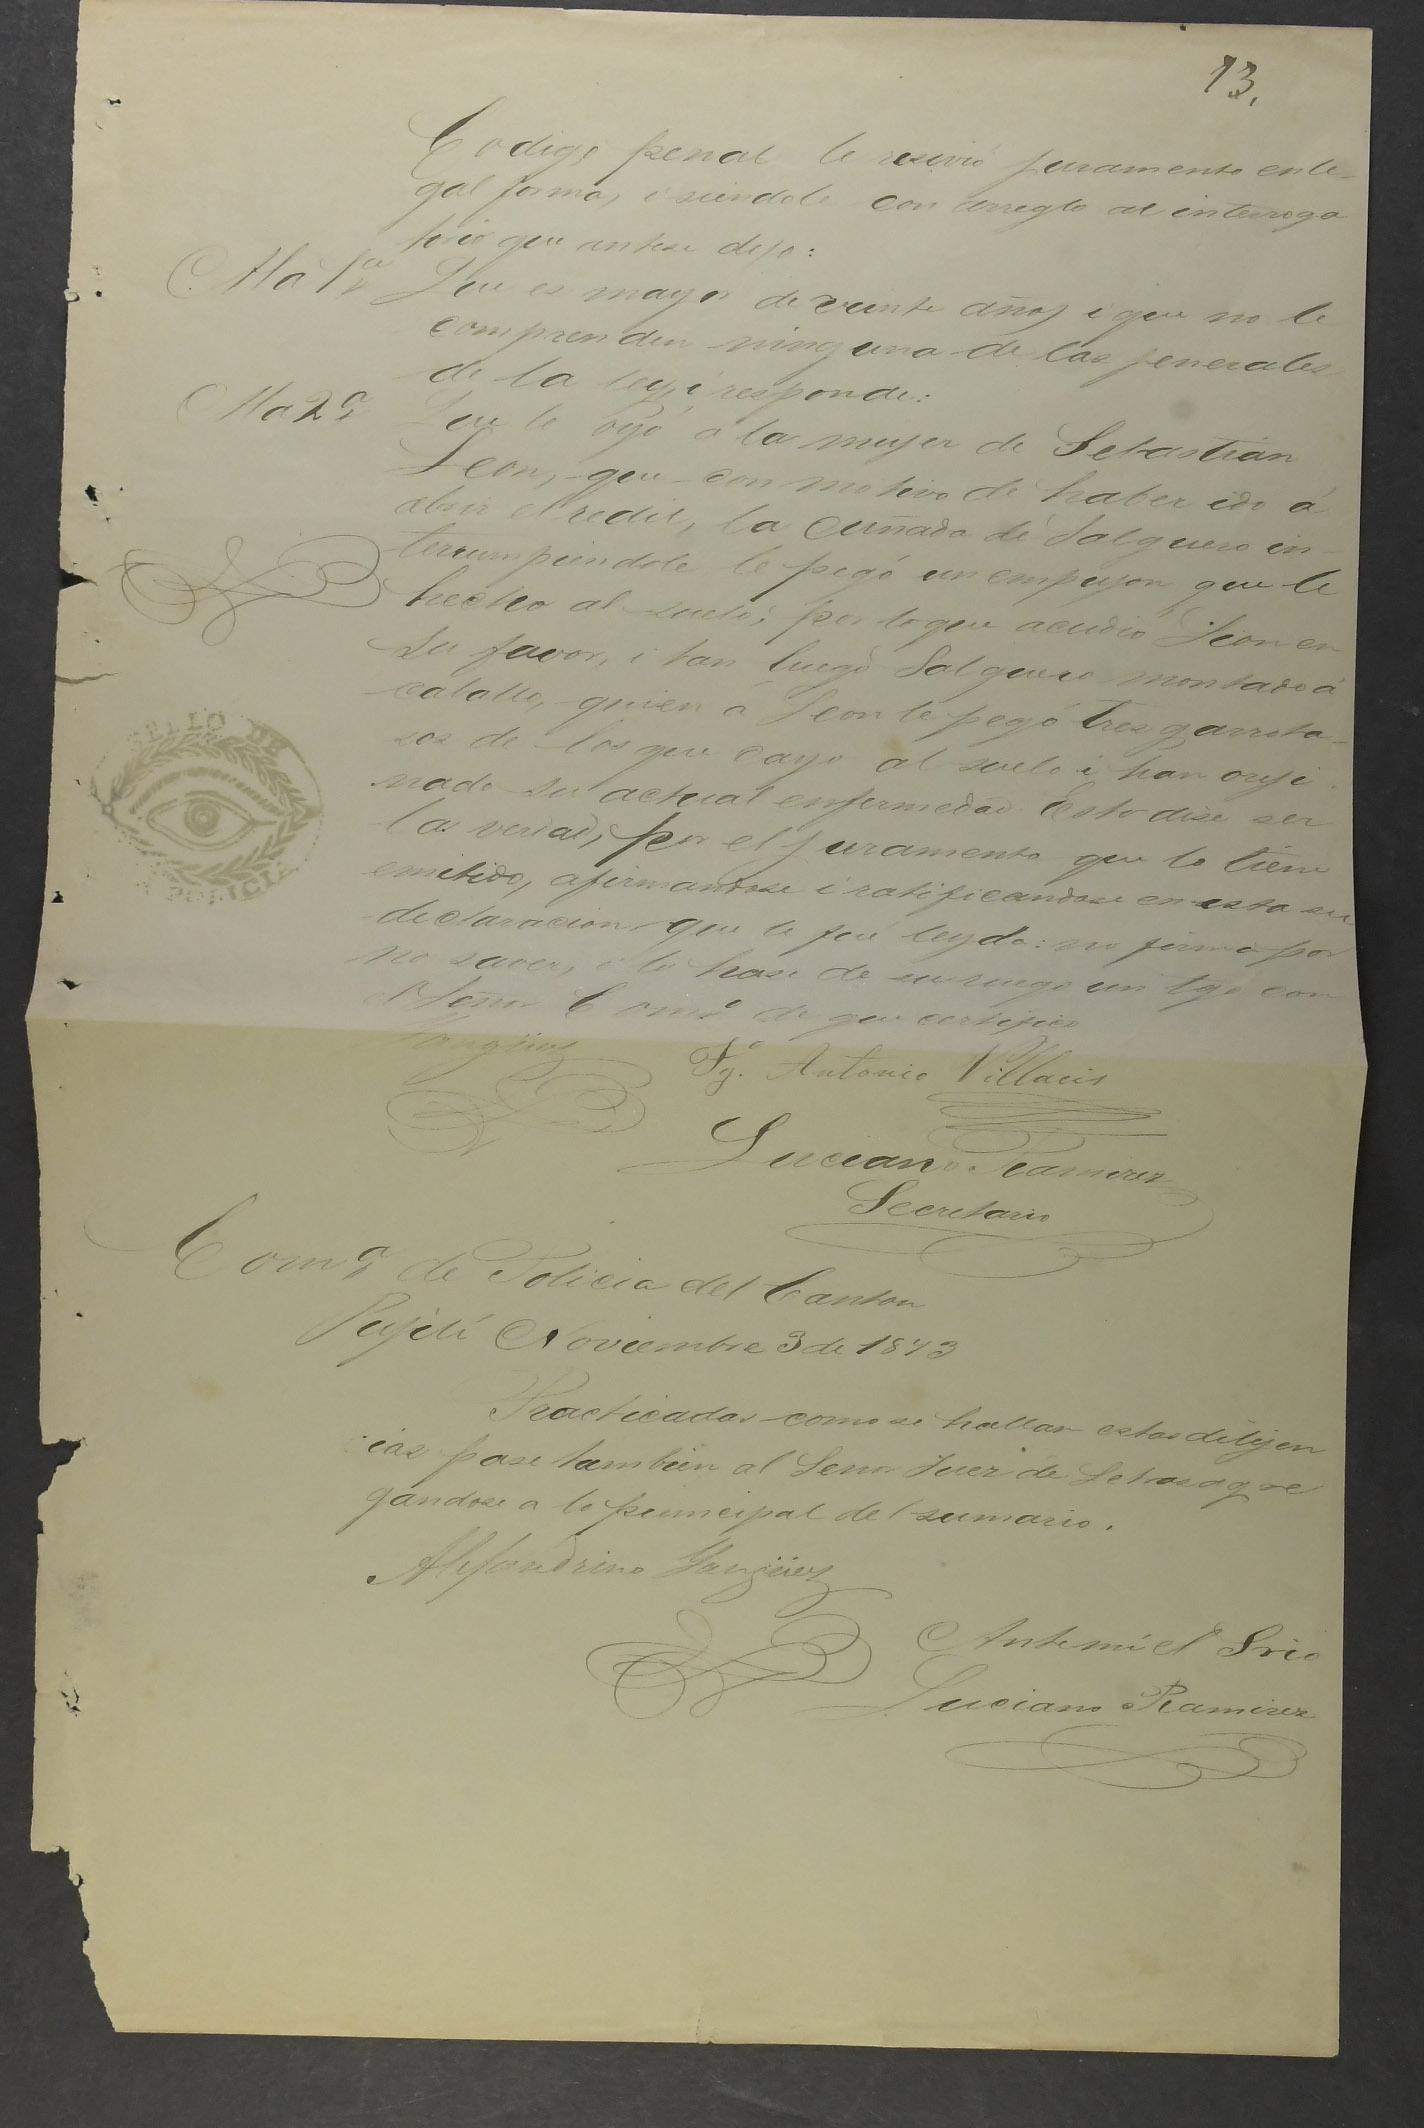 13.
Codigo penal le resivió juramento en le-
gal forma, i siendole con arreglo al interroga
torio que antese dijo:
A la 1ª Que es mayor de veinte años i que no le
comprenden ninguna de las jenerales
de la ley, i responde:
A la 2ª Que le oyó a la mujer de Sebastian
Leon, que con motivo de haber ido á
abrir el redil, la cuñada de Salguero in-
terrumpiendole le pegó un empujon que le
hecho al suelo; por lo que acudió Leon en
su favor, i tan luego Salguero montado á
caballo, quien a Leon le pegó tres garrota-
sos de los que cayo al suelo i han oriji
nado su actual enfermedad. Esto dise ser
la verdad, por el juramento que lo tiene
emitido, afirmandose i ratificandose en esta su
declaracion que le fue leyda: no firma por
no saver, i lo hase de su ruego un tgo con
el Señor Comº de que certifico
Yangües
Tgº. Antonio Villacis
Luciano Ramirez
Secretario
SELLO DE
POLICIA
Comª de Policia del Canton
Pujilí Noviembre 3 de 1873
Practicadas como se hallan estas dilijen
cias pase tambien al Señor Juez de Letras agre
gandose a lo principal del sumario.
Alejandrino Yangües
Antemí el Srio
Luciano Ramirez